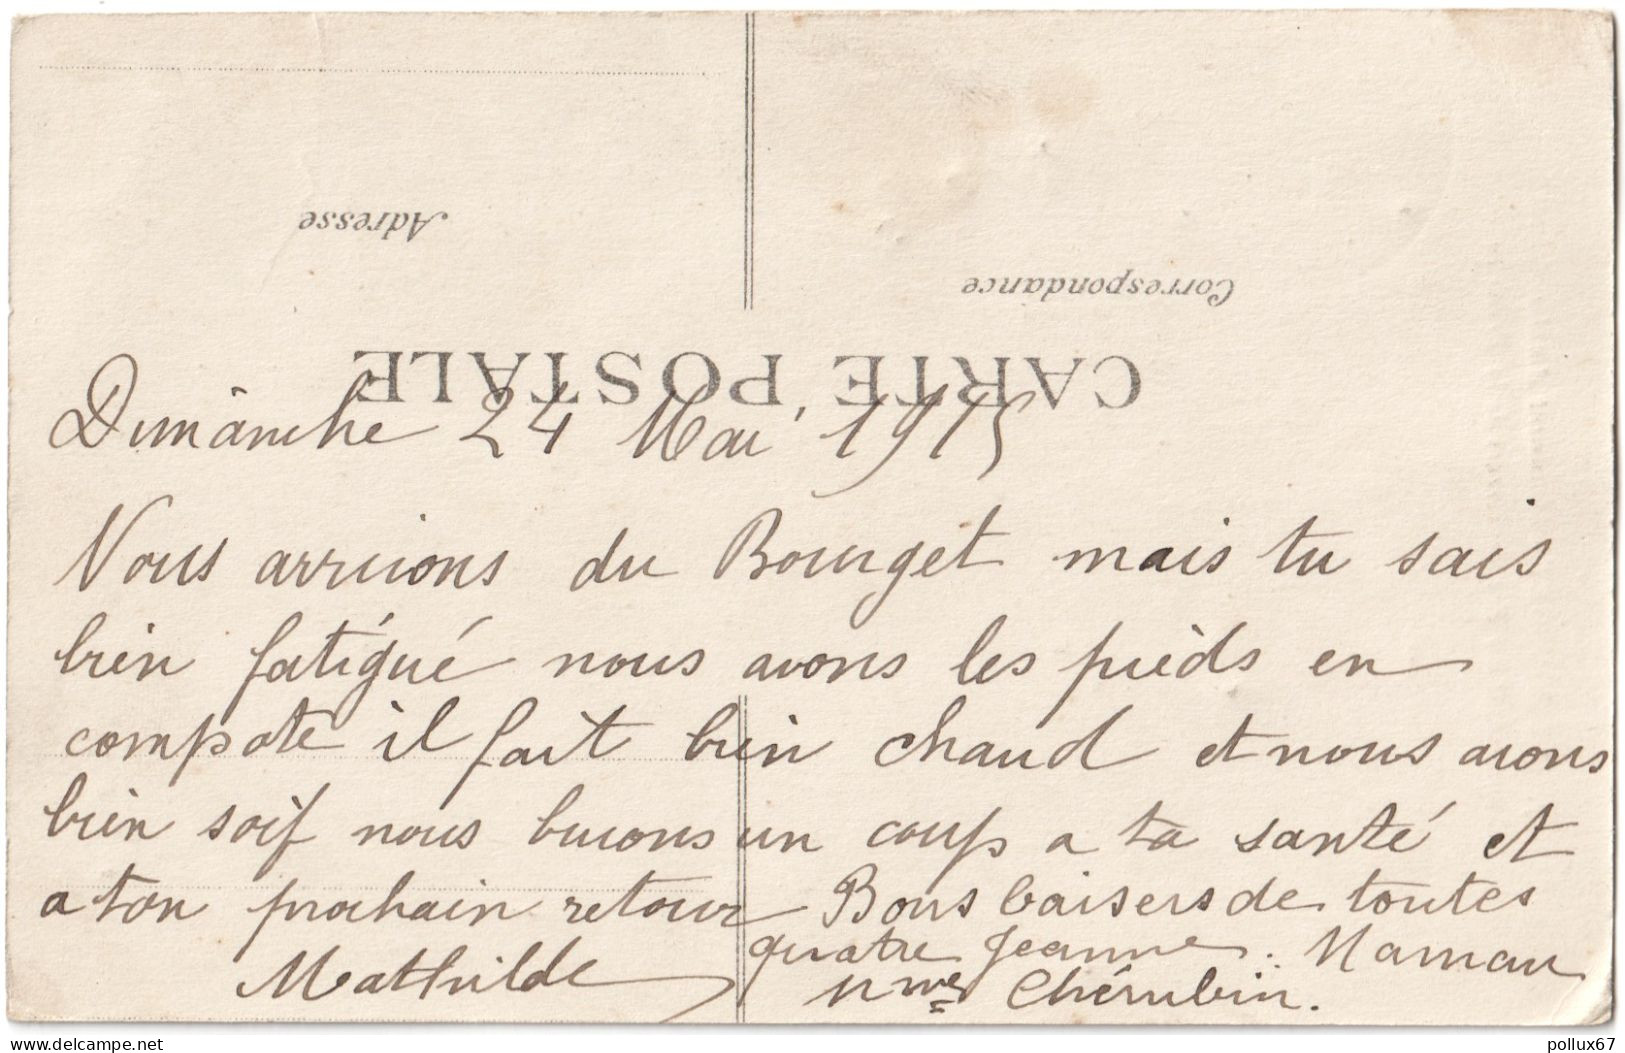 Adresse
Correspondance
CARTE POSTALE
Dimanche 24 Mai 1915
Nous arrivons du Bourget mais tu sais
bien fatigué nous avons les pieds en
compote il fait bien chaud et nous avons
bien soif nous buvons un coup a ta santé et
a ton prochain retour Bons baisers de toutes
quatre Jeanne. Maman
Mathilde Mme Chérubin.
delcampe.net
pollux67